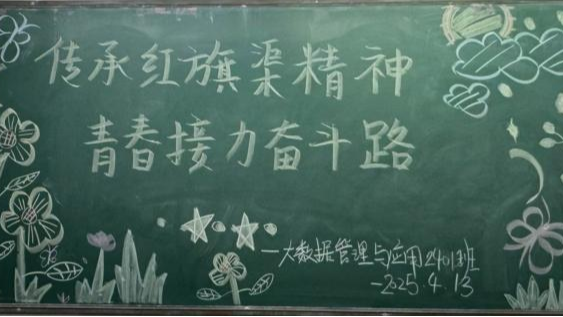 传承红旗渠精神
青春接力奋斗路
—大数据管理与应用2401班
-2025.4.13